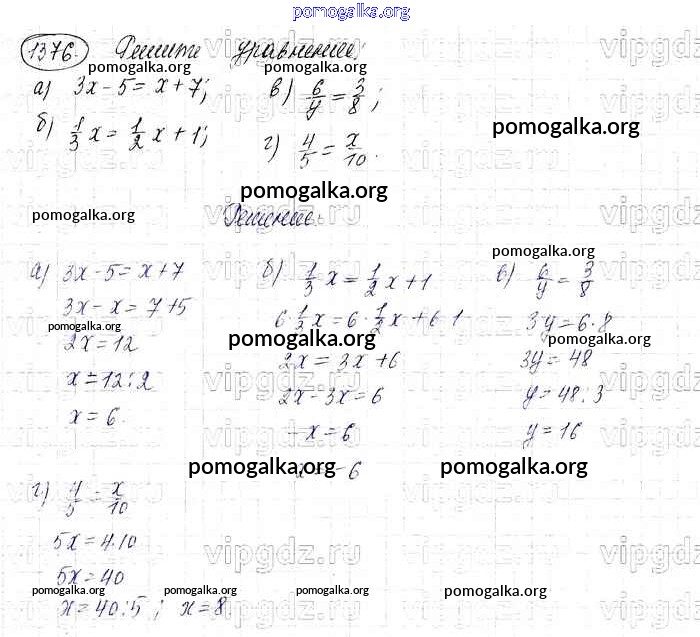 pomogalka.org
1376. Решите уравнение:
vipgdz.ru
pomogalka.org pomogalka.org
а) 3x - 5 = x + 7; в) 6/y = 3/8;
б) 1/3 x = 1/2 x + 1; г) 4/5 = x/10.
pomogalka.org
vipgdz.ru
pomogalka.org
pomogalka.org
Решение.
vipgdz.ru vipgdz.ru
pomogalka.org
а) 3x - 5 = x + 7
3x - x = 7 + 5
pomogalka.org
2x = 12
x = 12 : 2
x = 6.
б) 1/3 x = 1/2 x + 1
6 · 1/3 x = 6 · 1/2 x + 6 · 1
pomogalka.org
2x = 3x + 6
2x - 3x = 6
- x = 6
x = - 6
в) 6/y = 3/8
3y = 6 · 8
pomogalka.org
3y = 48
y = 48 : 3
y = 16
vipgdz.ru vipgdz.ru
vipgdz.ru vipgdz.ru
pomogalka.org pomogalka.org
г) 4/5 = x/10
5x = 4 · 10
5x = 40
pomogalka.org pomogalka.org pomogalka.org pomogalka.org
x = 40 : 5; x = 8
vipgdz.ru vipgdz.ru